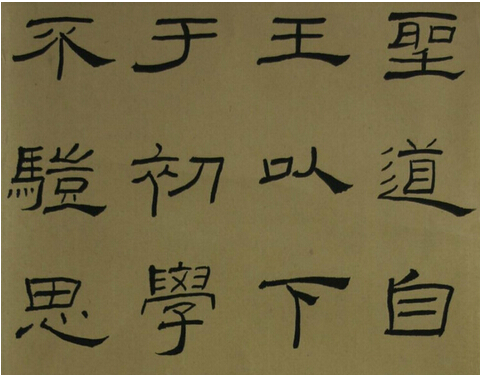 聖道自
王以下
于初學
不思